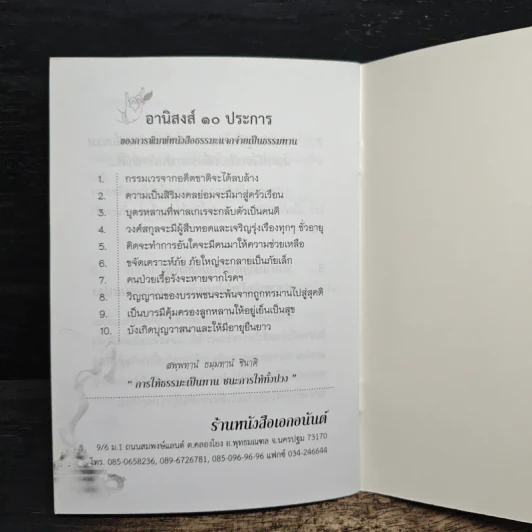 อานิสงส์ ๑๐ ประการ
ของการพิมพ์หนังสือธรรมะแจกจ่ายเป็นธรรมทาน
1. กรรมเวรจากอดีตชาติจะได้ลบล้าง
2. ความเป็นสิริมงคลย่อมจะมีมาสู่ครัวเรือน
3. บุตรหลานที่พาลเกเรจะกลับตัวเป็นคนดี
4. วงศ์สกุลจะมีผู้สืบทอดและเจริญรุ่งเรืองทุกๆ ชั่วอายุ
5. คิดจะทำการอันใดจะมีคนมาให้ความช่วยเหลือ
6. ขจัดเคราะห์ภัย ภัยใหญ่จะกลายเป็นภัยเล็ก
7. คนป่วยเรื้อรังจะหายจากโรคฯ
8. วิญญาณของบรรพชนจะพ้นจากถูกทรมานไปสู่สุคติ
9. เป็นบารมีคุ้มครองลูกหลานให้อยู่เย็นเป็นสุข
10. บังเกิดบุญวาสนาและให้มีอายุยืนยาว
สพฺพทานํ ธมฺมทานํ ชินาติ
" การให้ธรรมะเป็นทาน ชนะการให้ทั้งปวง "
ร้านหนังสือเอกอนันต์
9/6 ม.1 ถนนสมพงษ์แลนด์ ต.คลองโยง อ.พุทธมณฑล จ.นครปฐม 73170
โทร. 085-0658236, 089-6726781, 085-096-96-96 แฟกซ์ 034-246644